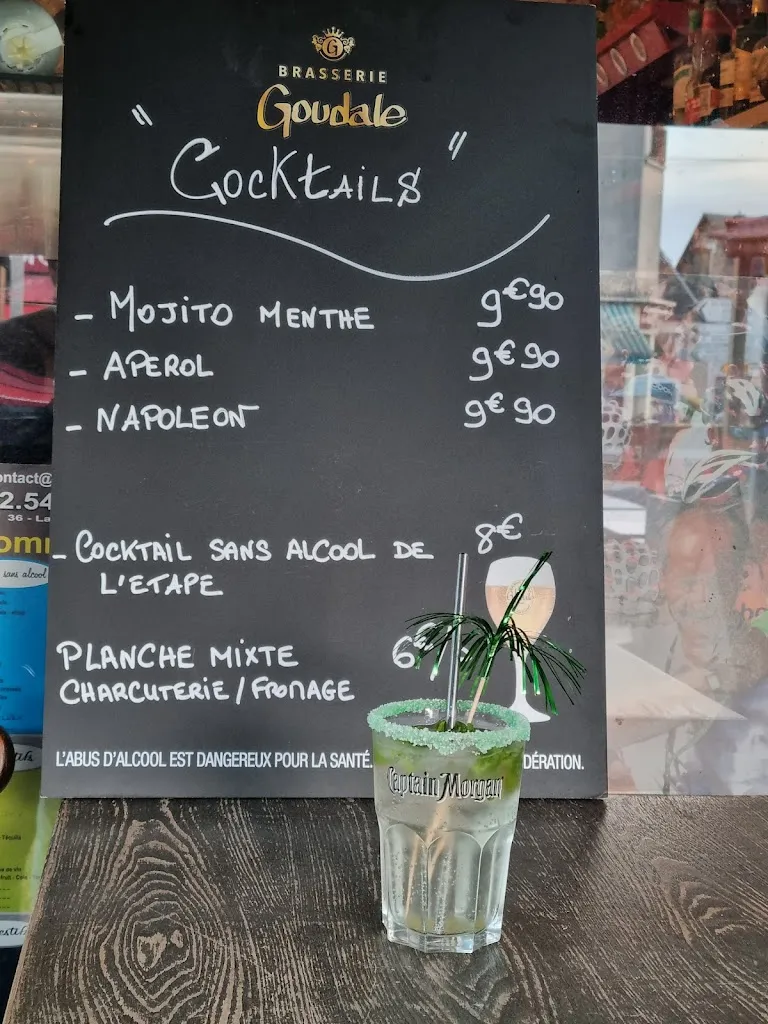 G
BRASSERIE
Goudale
" COCKTAILS "
- MOJITO MENTHE 9€90
- APEROL 9€90
- NAPOLEON 9€90
- COCKTAIL SANS ALCOOL DE 8€
L'ETAPE
PLANCHE MIXTE 6€
CHARCUTERIE/FROMAGE
L'ABUS D'ALCOOL EST DANGEREUX POUR LA SANTÉ. DÉRATION.
Captain Morgan
ontact@
2.54
36 - La
om
sans alcool